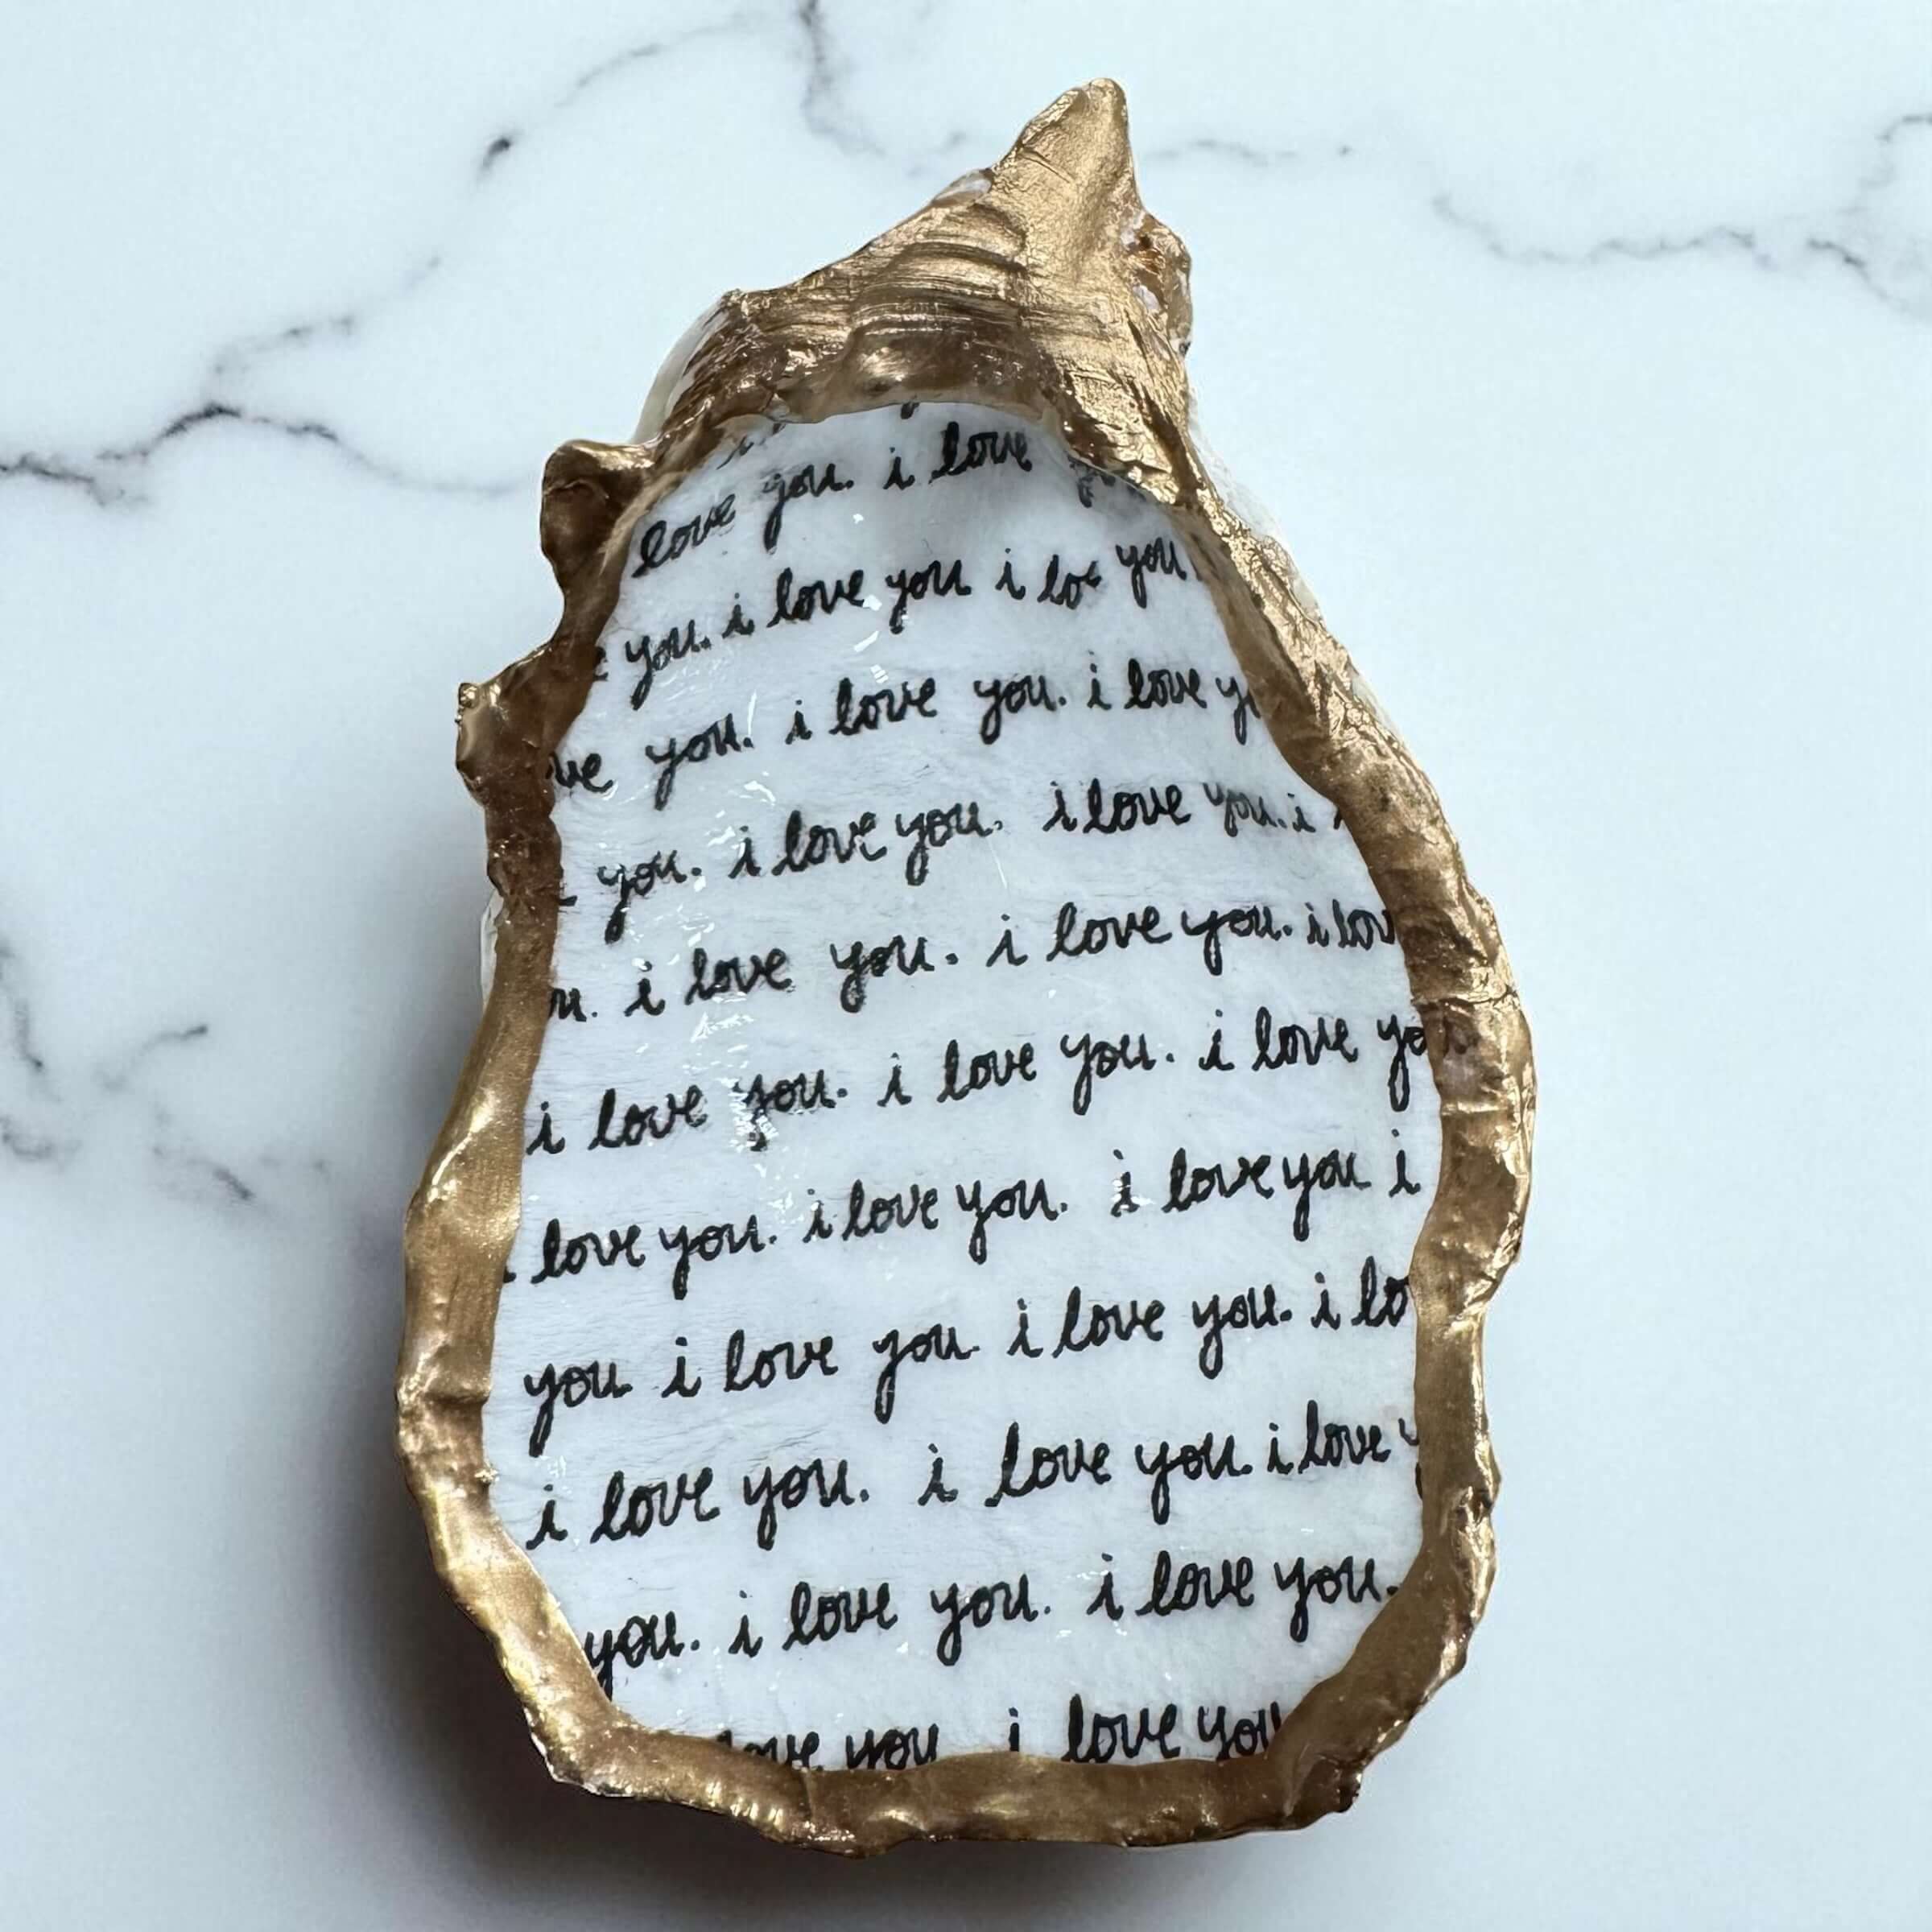 love you. i love
you. i love you i you
you. i love you. i love
you. i love you. i love you. i
i love you. i love you. i
i love you. i love you. i love
love you. i love you. i love you i
you i love you. i love you. i
i love you. i love you. i love
you. i love you. i love you.
you i love you